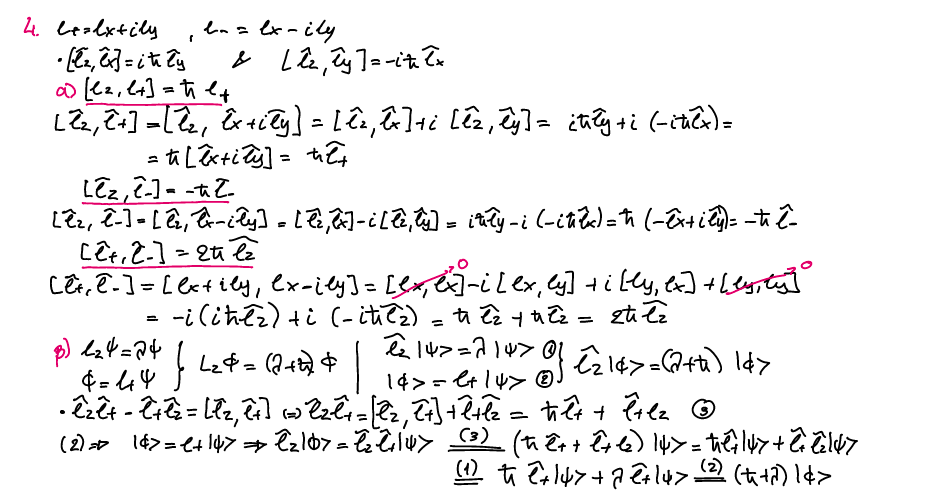 4. l₊=lx+ily , l₋ = lx - ily
·[l̂z, l̂x]=iħ l̂y & [l̂z, l̂y]=-iħ l̂x
α) [lz, l+] = ħ l+
[l̂z, l̂+] = [l̂z, l̂x+il̂y] = [l̂z, l̂x]+i [l̂z, l̂y] = iħl̂y+i (-iħl̂x)=
= ħ[l̂x+il̂y] = ħl̂+
[l̂z, l̂-] = -ħ l̂-
[l̂z, l̂-]=[l̂z, l̂x-il̂y] = [l̂z, l̂x]-i[l̂z, l̂y] = iħl̂y-i (-iħl̂x)=ħ (-l̂x+il̂y)= -ħ l̂-
[l̂+, l̂-] = 2ħ l̂z
[l̂+, l̂-] = [lx+ily, lx-ily] = [lx, lx]→0 -i [lx, ly] +i [ly, lx] + [ly, ly]→0
= -i(iħl̂z)+i (-iħl̂z) = ħ l̂z + ħl̂z = 2ħ l̂z
β) lzψ=λψ } Lzφ=(λ+ħ) φ | l̂z |ψ> = λ |ψ> ① } l̂z |φ> =(λ+ħ) |φ>
φ= l+ψ | |φ> = l+ |ψ> ②
·l̂zl̂+ - l̂+l̂z = [l̂z, l̂+] ⇔ l̂zl̂+=[l̂z, l̂+]+l̂+l̂z = ħl̂+ + l̂+lz ③
(2)⇒ |φ> = l+|ψ> ⇒ l̂z|φ> = l̂zl̂+|ψ> =(3)= (ħ l̂+ + l̂+lz) |ψ> = ħl̂+|ψ> + l̂+ l̂z|ψ>
=(1)= ħ l̂+|ψ> + λ l̂+|ψ> =(2)= (ħ+λ) |φ>